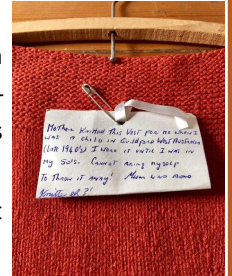 Mother Knitted This Vest for me when I
was a child in Guildford West Australia
(Late 1940's) I wore it until I was in
my 50's. Cannot bring myself
To Throw it away! Mum was
Knitter eh?!